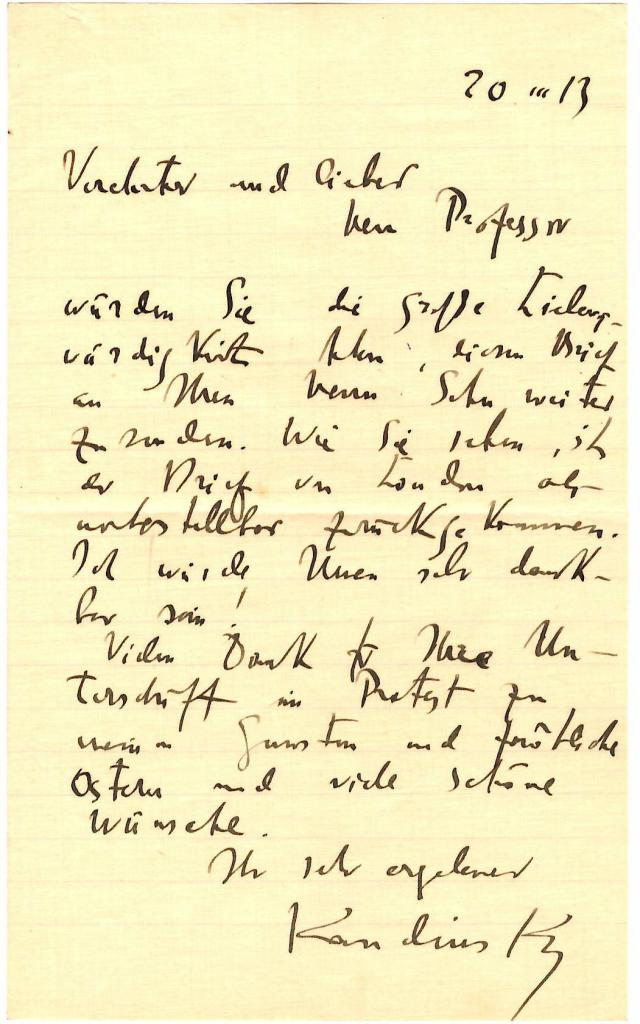 20 III 13
Verehrter und lieber
Herr Professor
würden Sie die große Liebens-
würdigkeit haben, diesen Brief
an Ihren Herrn Sohn weiter
zu senden. Wie Sie sehen, ist
der Brief von London als
unbestellbar zurückgekommen.
Ich würde Ihnen sehr dank-
bar sein!
Vielen Dank für Ihre Un-
terschrift im Protest zu
meinen Gunsten und fröhliche
Ostern und viele schöne
Wünsche.
Ihr sehr ergebener
Kandinsky